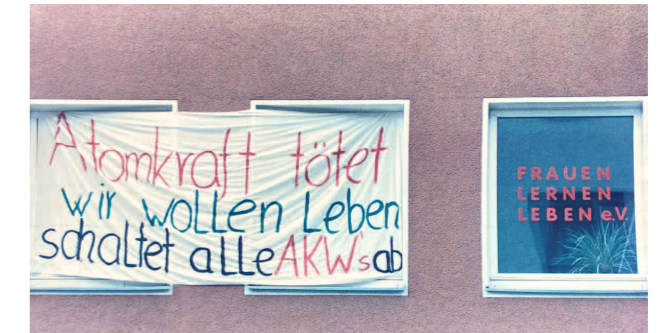 Atomkraft tötet
wir wollen Leben
schaltet alle AKW's ab
FRAUEN
LERNEN
LEBEN e.V.